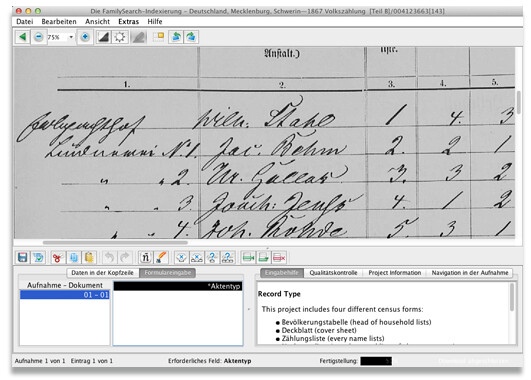 Die FamilySearch-Indexierung – Deutschland, Mecklenburg, Schwerin—1867 Volkszählung [Teil 8]/004123663[143]
Datei Bearbeiten Ansicht Extras Hilfe
75%
Anstalt.)
1. 2. 3. 4. 5.
Wilh. Stahl 1 4. 3
N. 1. Jac. Behm 2. 2 1
" " 2. 3. 3 2
" " 3. Joach. 4. 1 2
" " 4. Joh. Rohde 5. 3 1
Daten in der Kopfzeile Formulareingabe
Eingabehilfe Qualitätskontrolle Project Information Navigation in der Aufnahme
Aufnahme – Dokument
*Aktentyp
01 – 01
Record Type
This project includes four different census forms:
• Bevölkerungstabelle (head of household lists)
• Deckblatt (cover sheet)
• Zählungsliste (every name lists)
Aufnahme 1 von 1 Eintrag 1 von 1 Erforderliches Feld: Aktentyp Fertigstellung: